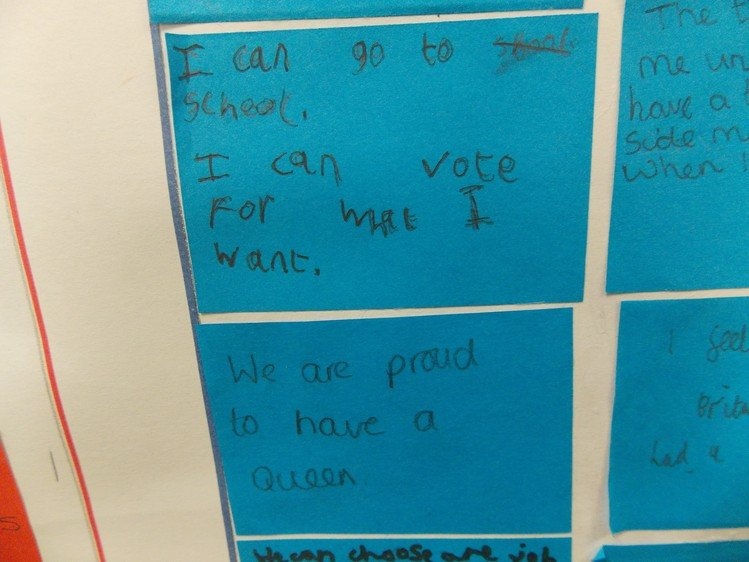 I can go to
school.
I can vote
For what I
want.
We are proud
to have a
Queen
We can choose are job
The
me un
have a
side m
when
I feel
Brita
had a